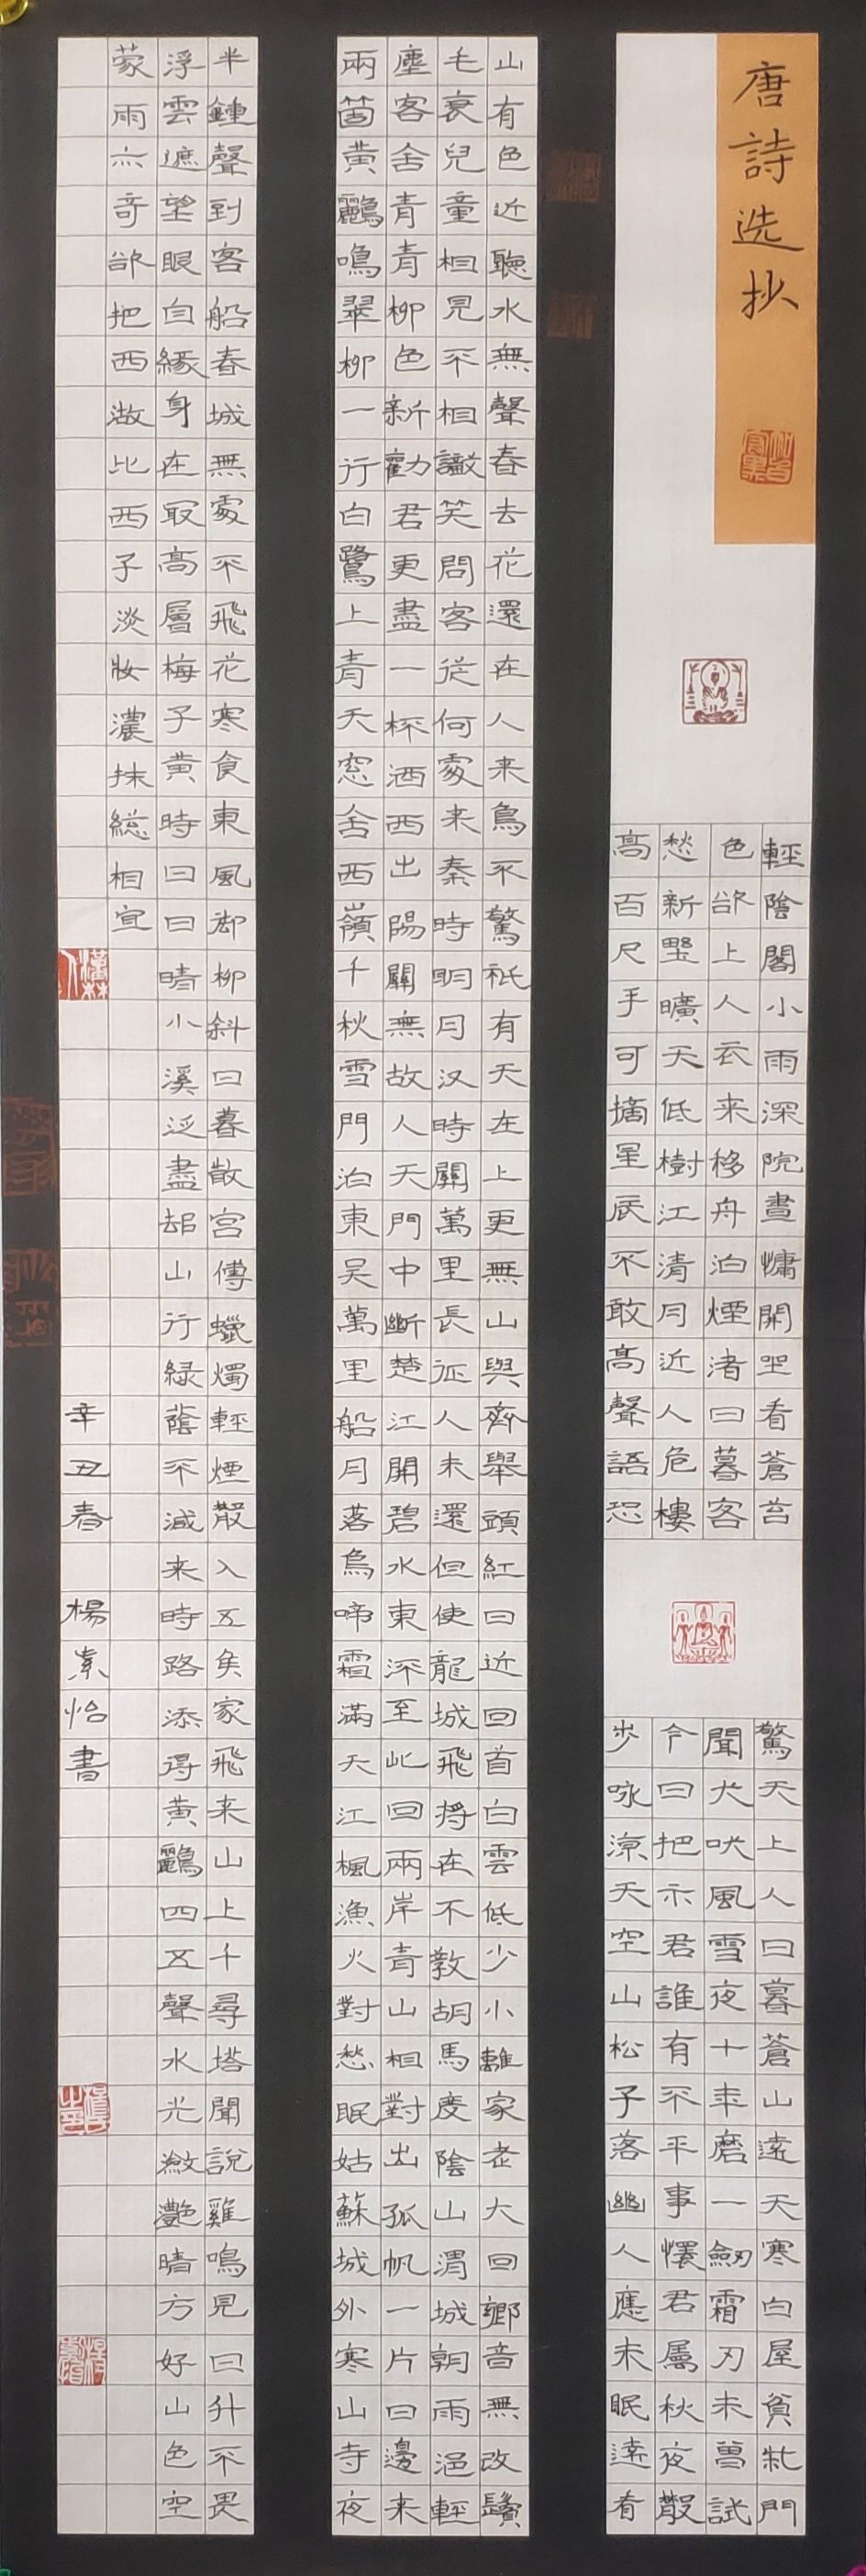 唐詩选抄
輕陰閣小雨深院晝慵開坐看蒼苔
色欲上人衣来移舟泊煙渚日暮客
愁新墅曠天低樹江清月近人危樓
高百尺手可摘星辰不敢高聲語恐
驚天上人日暮蒼山遠天寒白屋貧柴門
聞犬吠風雪夜十年磨一劒霜刃未曾試
今日把示君誰有不平事懷君屬秋夜散
步咏涼天空山松子落幽人應未眠遠看
山有色近聽水無聲春去花還在人来鳥不驚祇有天在上更無山與齊舉頭紅日近回首白雲低少小離家老大回鄉音無改鬢
毛衰兒童相見不相識笑問客從何處来秦時明月汉時關萬里長征人未還但使龍城飛將在不教胡馬度陰山渭城朝雨浥輕
塵客舍青青柳色新勸君更盡一杯酒西出陽關無故人天門中斷楚江開碧水東深至此回兩岸青山相對出孤帆一片日邊来
兩箇黃鸝鳴翠柳一行白鷺上青天窓舍西嶺千秋雪門泊東吴萬里船月落烏啼霜滿天江楓漁火對愁眠姑蘇城外寒山寺夜
半鍾聲到客船春城無處不飛花寒食東風御柳斜日暮散宮傳蠟燭輕煙散入五侯家飛来山上千尋塔聞說雞鳴見日升不畏
浮雲遮望眼自緣身在最高層梅子黃時日日晴小溪泛盡却山行緑蔭不減来時路添得黃鸝四五聲水光瀲灔晴方好山色空
蒙雨亦奇欲把西湖比西子淡妝濃抹総相宜
辛丑春 楊素怡書